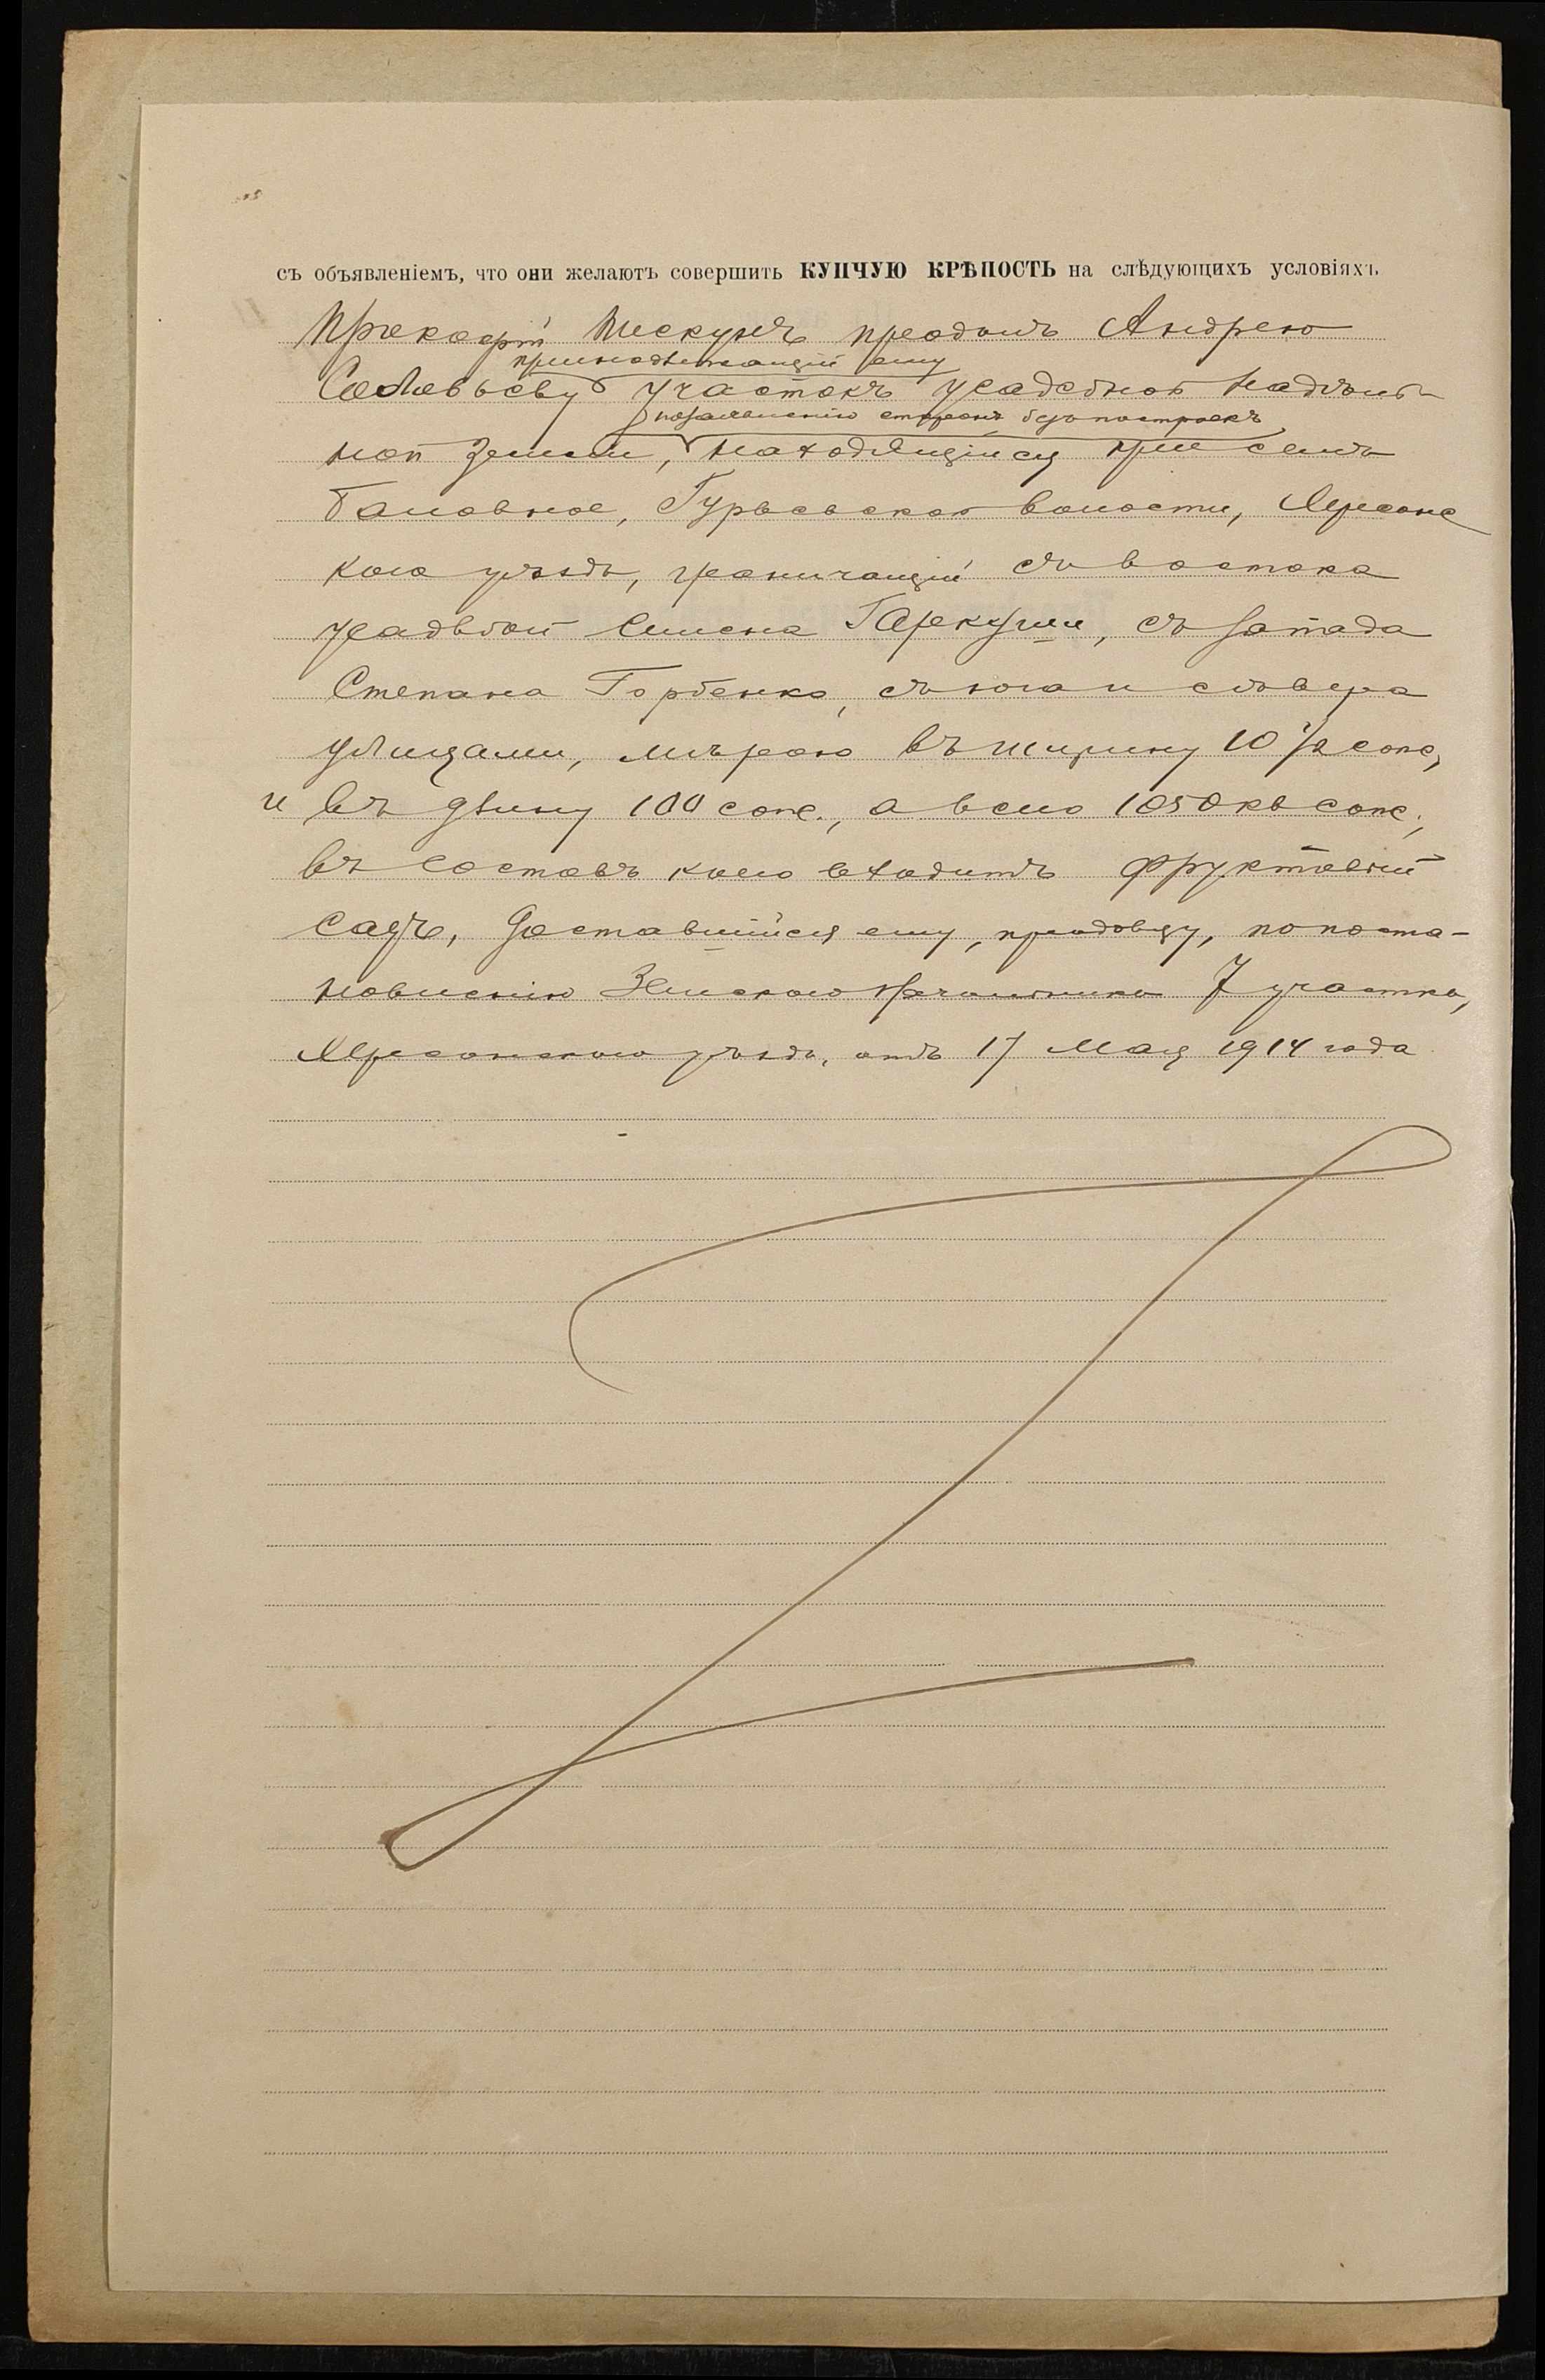 съ объявленіемъ, что они желаютъ совершить КУПЧУЮ КРѢПОСТЬ на слѣдующихъ условіяхъ.
Прокофій Пискунъ продалъ Андрею
принадлежащій ему
Соловьеву участокъ усадебной надѣль-
по заявленію сторонъ безъ построекъ
ной земли, находящійся при селѣ
Баловное, Гурьевской волости, Херсонс
каго уѣзда, граничащій съ востока
усадьбой Семена Гаркуши, съ запада
Степана Горбенко, съ юга и сѣвера
улицами, мѣрою въ ширину 10 1/2 саж.,
и въ длину 100 саж., а всего 1050 кв саж.,
въ составъ коего входитъ фруктовый
садъ, доставшійся ему, продавцу, по поста-
новленію Земскаго Начальника 7 участка,
Херсонскаго уѣзда, отъ 17 Мая 1914 года